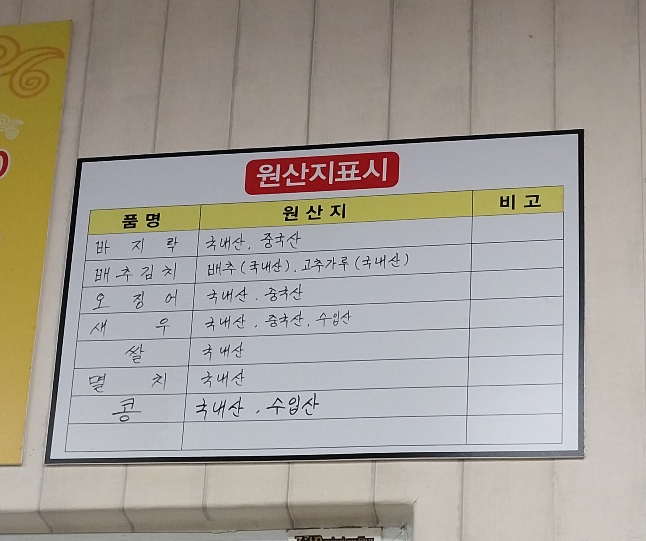 원산지표시
품명 원산지 비고
바지락 국내산, 중국산
배추김치 배추(국내산), 고추가루(국내산)
오징어 국내산, 중국산
새우 국내산, 중국산, 수입산
쌀 국내산
멸치 국내산
콩 국내산, 수입산